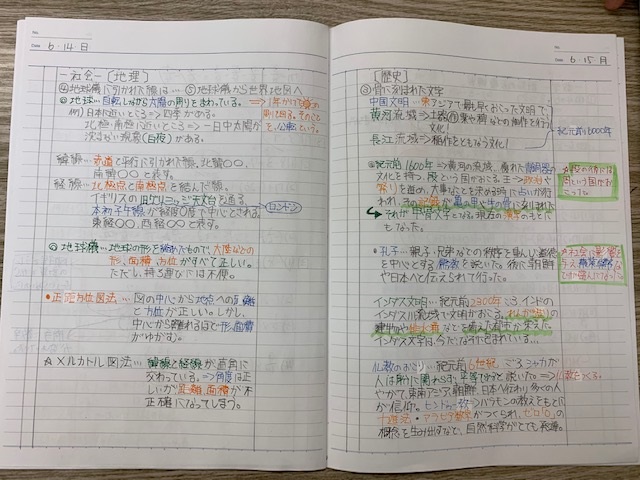 No.
Date 6・14・日
－社会－ [地理]
④地球儀に引かれた線は… ⑤地球儀から世界地図へ
◎地球…自転しながら太陽の周りをまわっている。
⇒1年かけて
例)日本に近いところ⇒四季がある。
北極・南極に近いところ⇒一日中太陽が
沈まない現象(白夜)がある。
を、公転という。
緯線…赤道と平行に引かれた線。北緯〇〇、
南緯〇〇と表す。
経線…北極点と南極点を結んだ線。
イギリスの旧グリニッジ天文台を通る
ロンドン
本初子午線が経度0度で中心とされる。
東経〇〇、西経〇〇と表す。
◎地球儀…地球の形を縮めたもので、大陸などの
形、面積、方位がすべて正しい。
ただし、持ち運びには不便。
・正距方位図法…図の中心から地点への距離
と方位が正しい。しかし、
中心から離れるほど形、面積
がゆがむ。
メルカトル図法…緯線と経線が直角に
交わっている。⇒角度は正
しいが距離、面積が不
正確になってしまう。
No.
Date 6・15・月
[歴史]
③骨に刻まれた文字
中国文明…東アジアで最も早くおこった文明で
黄河流域⇒土器
栗や稗などの畑作を行う
文化!
長江流域⇒稲作をともなう文化!
紀元前16000年
◎紀元前1600年⇒黄河の流域…優れた青銅器の
文化を持つ、殷という国がおこる。王⇒政治や
祭りを進め、大事なことを決める時に占いが行
われ、その記録が亀の甲や牛の骨に刻まれた
それが甲骨文字となる。現在の漢字のもとに
もなった。
・孔子…親子、兄弟などの秩序を重んじ道徳
を中心とする儒教を説いた。後に朝鮮
や日本へと伝えられて行った。
インダス文明…紀元前2300年ごろ、インドの
インダス川流域で文明がおこる。れんが造りの
建物や排水路などを備えた都市が栄えた。
インダス文字は、今だ解読されていない…
仏教のおこり…紀元前6世紀ごろシャカが
人は解力に関わらず、平等であると説いた。⇒仏教となる。
やがて、東南アジア、朝鮮、日本へ伝わり多くの人
が信仰。ヒンドゥー教…バラモンの教えをもとに
十進法・アラビア数字がつくられ、ゼロ「0」の
概念を生み出すなど、自然科学がとても発達。